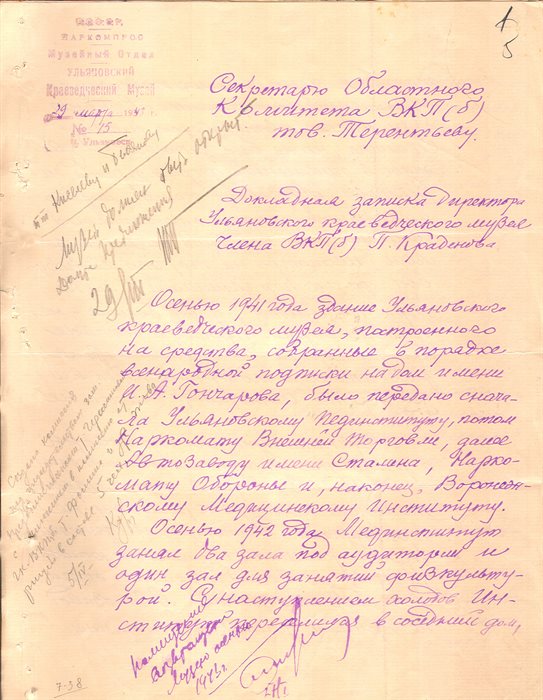 Р.С.Ф.С.Р.
НАРКОМПРОС
Музейный Отдел
УЛЬЯНОВСКИЙ
Краеведческий Музей
29 марта 194
№ 15
г. Ульяновск
1
5
Секретарю Областного
Комитета ВКП(б)
тов. Терентьеву.
Музей должен быть открыт.
Дайте предложения
29/III
Докладная записка директора
Ульяновского краеведческого музея
члена ВКП(б) П. Краденова
Осенью 1941 года здание Ульяновского
краеведческого музея, построенного
на средства, собранные в порядке
всенародной подписки на дом имени
И. А. Гончарова, было передано снача-
ла Ульяновскому Пединституту, потом
Наркомату Внешней Торговли, далее
Автозаводу имени Сталина, Нарко-
мату Обороны и, наконец, Воронеж-
скому Медицинскому Институту.
Осенью 1942 года Мединститут
занял два зала под аудитории и
один зал для занятий физкульту-
рой. С наступлением холодов Ин-
ститут переехал в соседний дом,
5/IV
помещение
музею
1943 г.
7-38